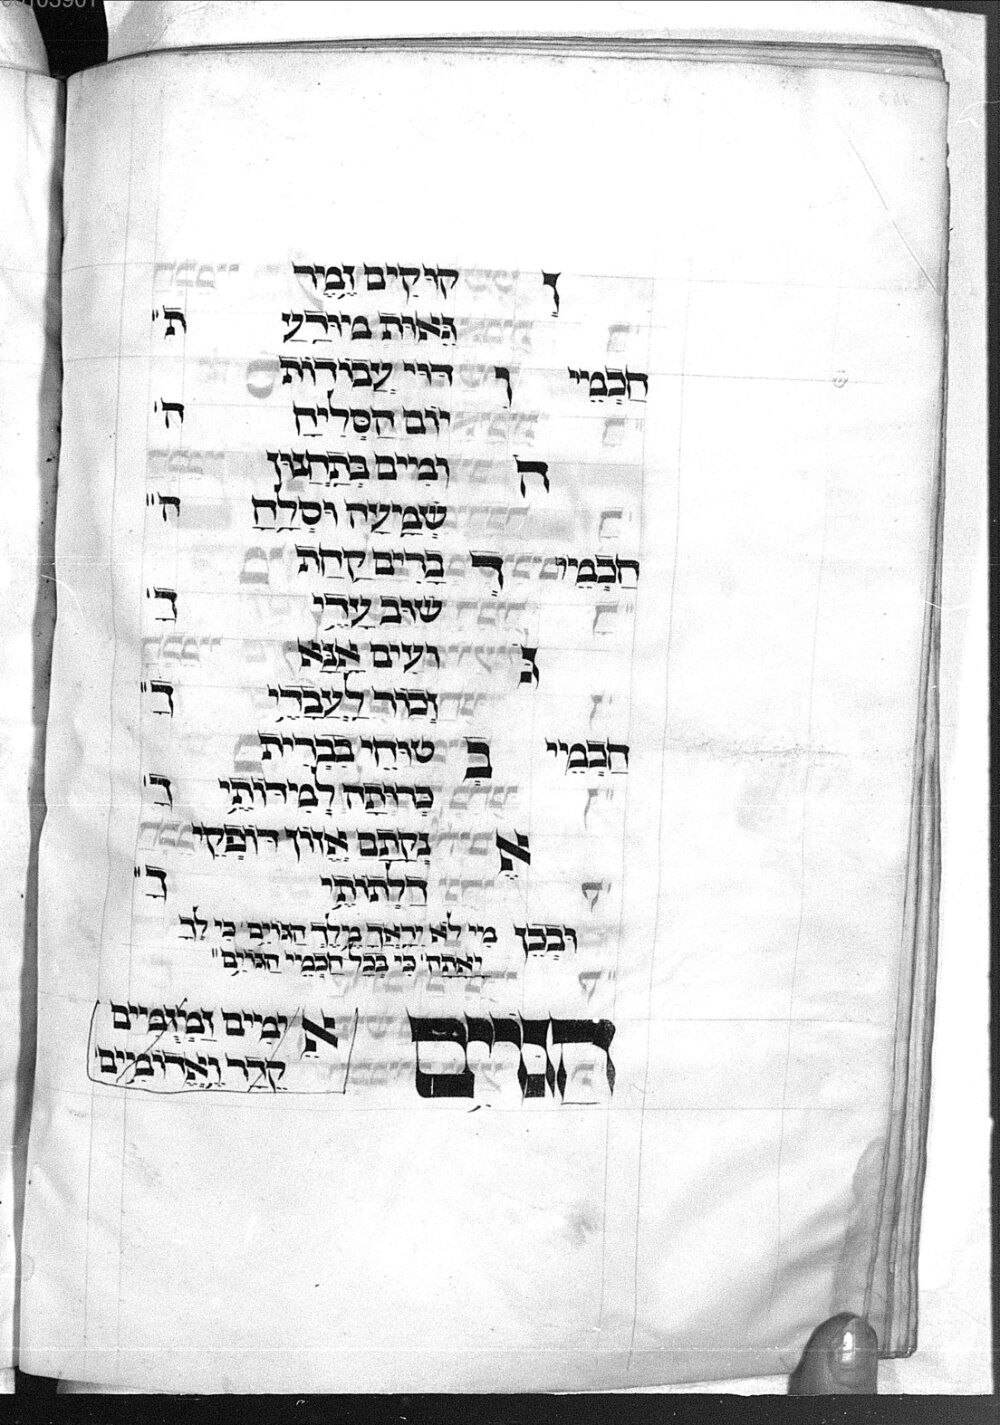 וְ קוּקִים זָמִיר
גֵּאוּת מִיּוּרַע תֹ"
חַכְמֵיי וְ דוּיֵ עֲבוֹדוֹת
יוֹם הַסְּלִיחַ ה'
ה וּמַיִם בְּתַחֲנוּן
שְׁמִיעָה וּסְלָחָ ה"
חַכְמֵיי דְ בָרִים קַחַת
שׁוּב עֲדֵי דָ'
נְ וּעִים אָנָּא
זְכוֹר לְעַבְדֵי דָ"
חַכְמֵיי בְּ טוּחֵי בִּבְרִית
כְּרוּתָה לְמִידוֹתֵי דָ'
אֶ נְקָתָם אֲזוֹן דּוֹפְקֵי
דַלְתוֹתֵי דָ"
וּבְכֵן מִי לֹא יִרָאֲךָ מֶלֶךְ הַגּוֹיִם כִּי לְךָ
יָאָתָה כִּי בְכָל חַכְמֵי הַגּוֹיִם"
הגויים אֵ ימִים זַמְזֻמִּיים
קֵדָר וַאֲדוֹמִיים